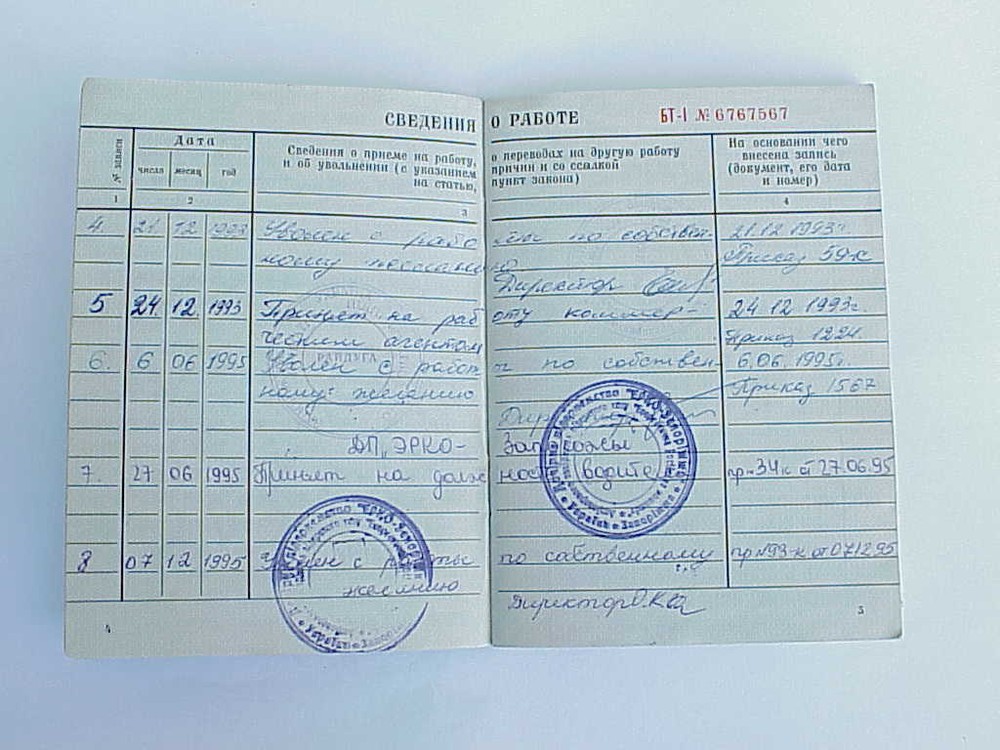 СВЕДЕНИЯ О РАБОТЕ БТ-I № 6767567
№ записи
Дата
число месяц год
Сведения о приеме на работу, о переводах на другую работу
и об увольнении (с указанием причин и со ссылкой
на статью, пункт закона)
На основании чего
внесена запись
(документ, его дата
и номер)
1 2 3 4
4. 21. 12 1993 Уволен с рабо ты по собствен- 21.12 1993г.
ному желанию. Приказ 59-к
Директор
5 24. 12. 1993 Принят на раб оту коммер- 24 12 1993г.
ческим агентом Приказ 1224.
РАПДУГА
6. 6 06 1995 Уволен с работ ы по собствен- 6.06. 1995г.
ному желанию Приказ 1567
ДП "ЭРКО- Запорожье
7. 27 06 1995 Принят на долж ность водите пр №34к от 27.06.95
8 07 12 1995 Уволен с работы по собственному пр №93-к от 07.12.95
желанию
Директор
4 5